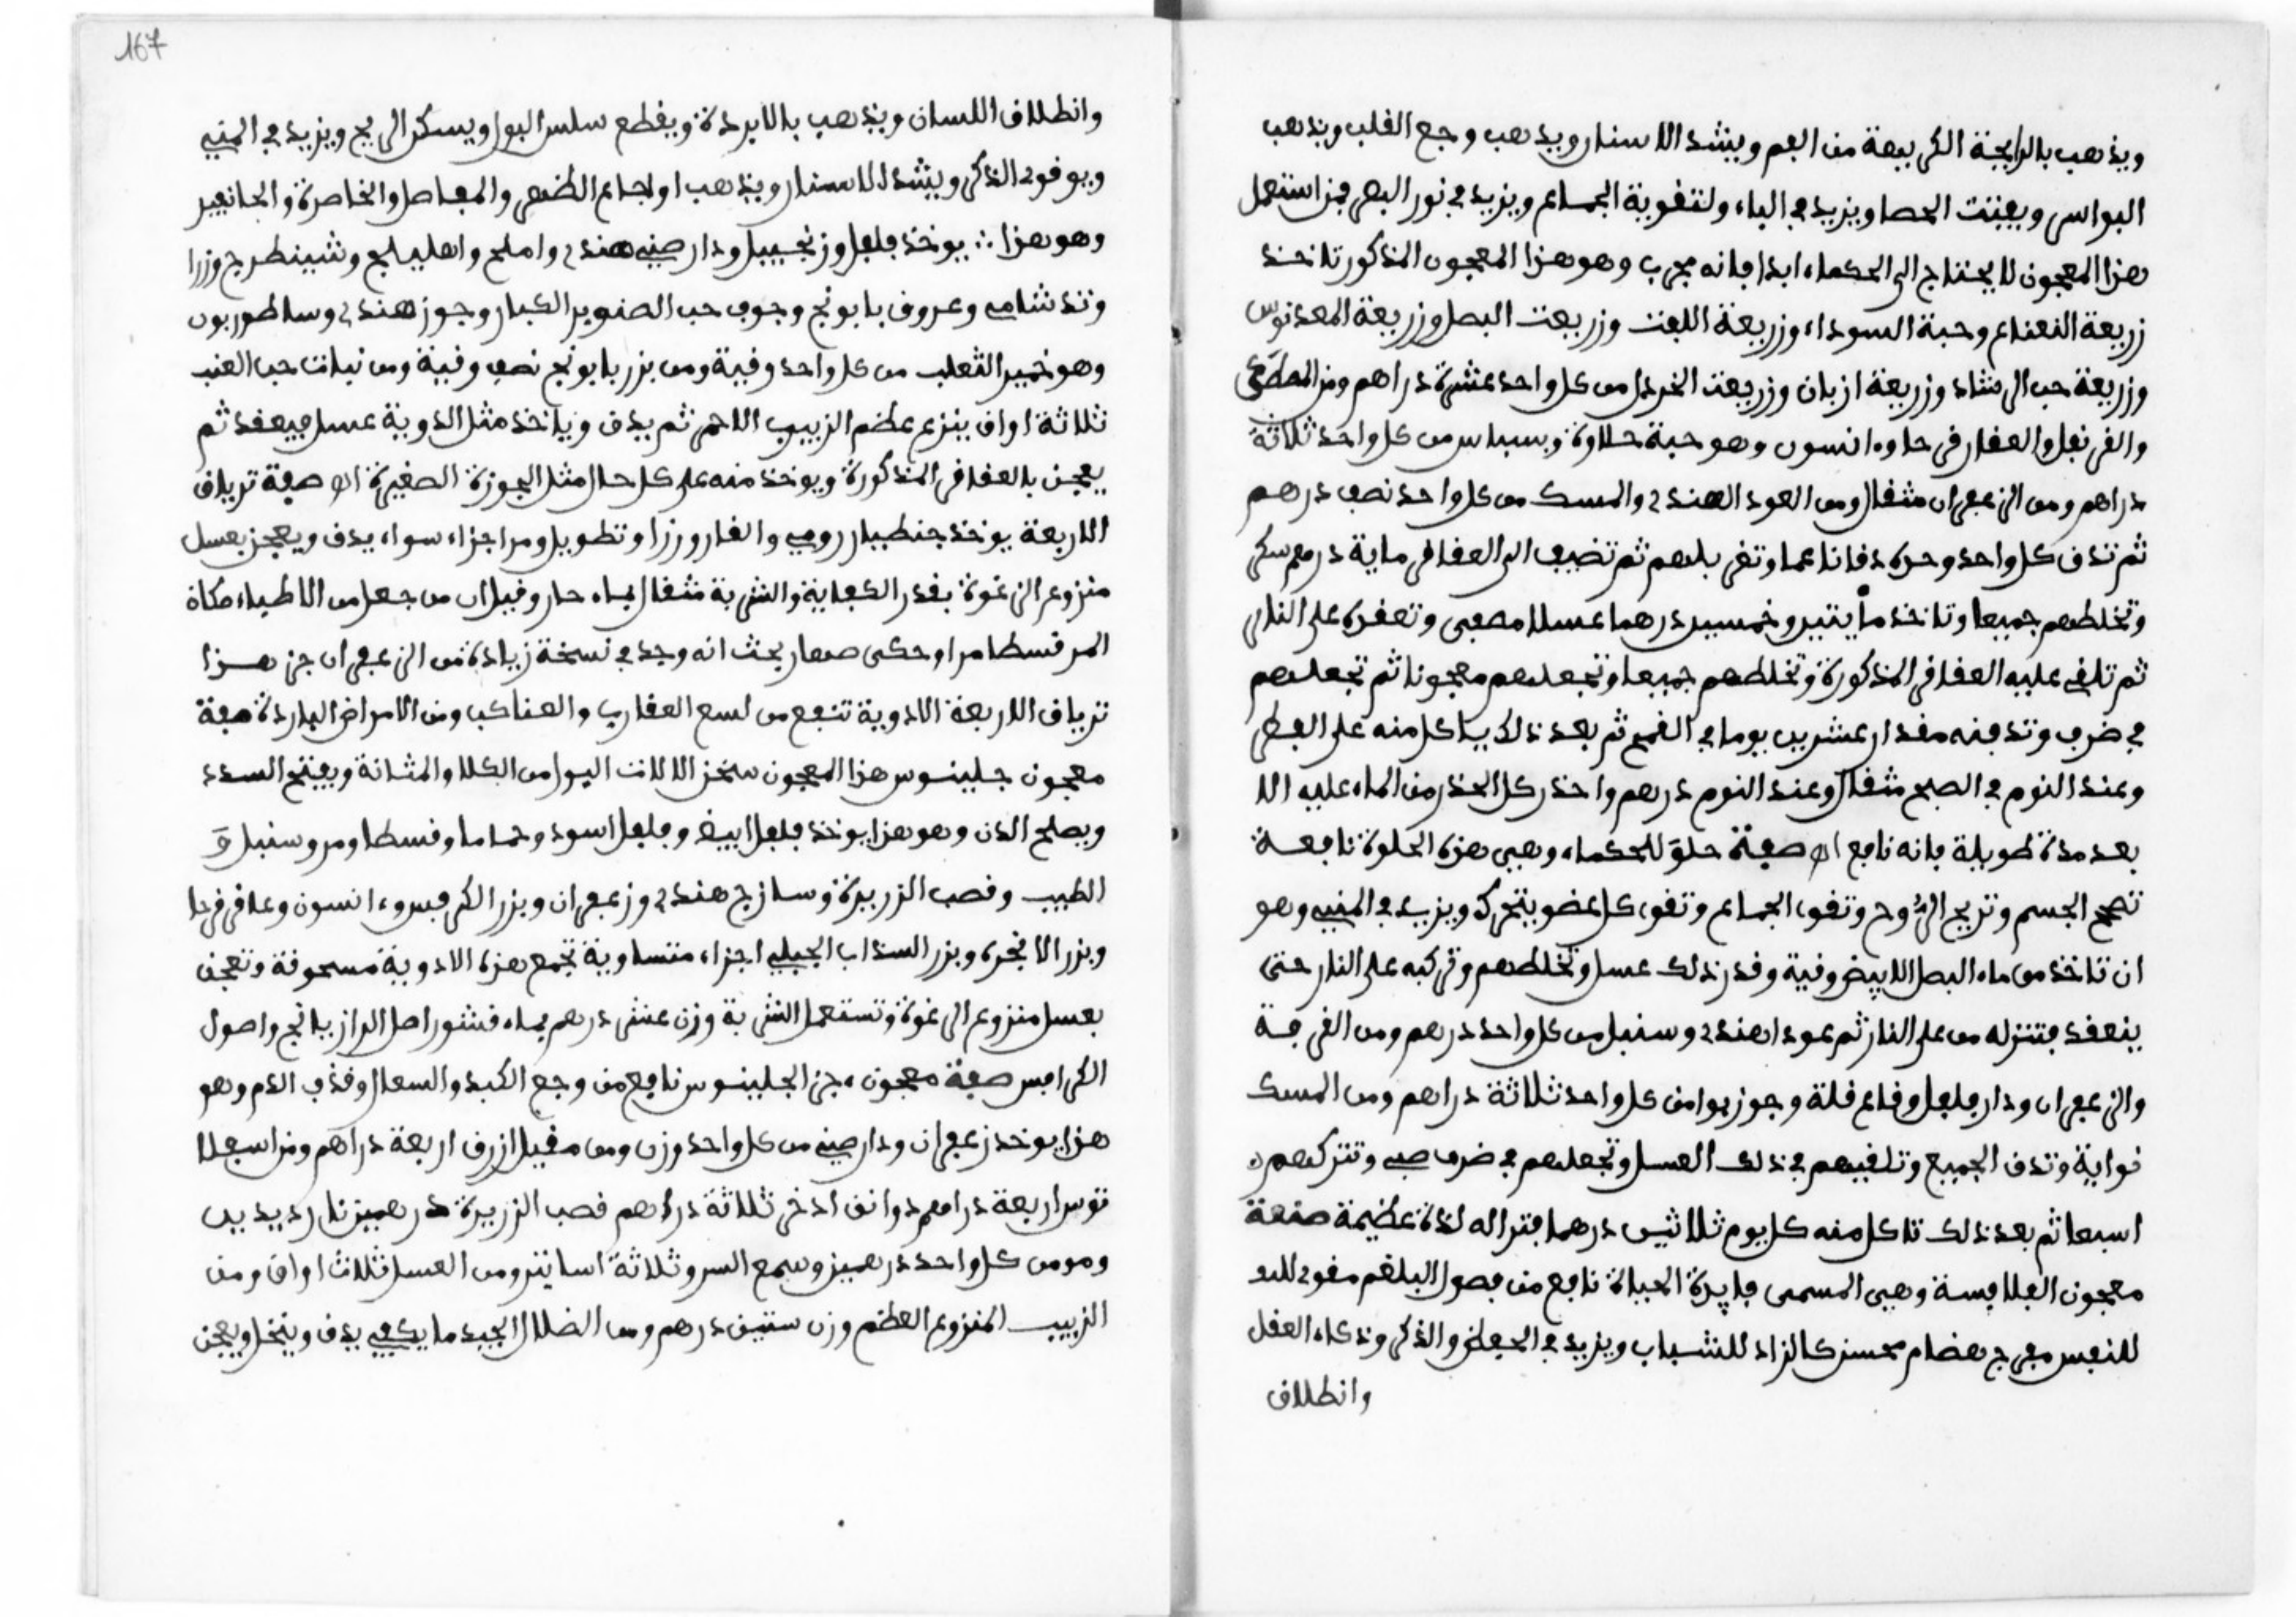 ويذهب بالرايحة الكريهة من الفم ويشد الاسنان ويذهب وجع القلب ويذهب
البواسر ويفتت الحصا ويزيد في الباء ولتقوية الجماع ويزيد في نور البصر فمن استعمل
هذا المعجون لا يحتاج الى الحكماء ابدا فانه مجرب وهو هذا المعجون المذكور تاخذ
زريعة النعناع وحبة السوداء وزريعة اللفت وزريعت البصل وزريعة المعدنوس
وزريعة حب الرشاد وزريعة ازبان وزريعت الخردل من كل واحد عشرة دراهم ومن المصطكى
والقرنفل والعفارفرحا وه انسون وهو حبة حلاوة وبسباس من كل واحد ثلاثة
دراهم ومن الزعفران مثقال ومن العود الهندي والمسك من كل واحد نصف درهم
ثم تدق كل واحد وحده دقا ناعما وتغربلهم ثم تضيف الى العقاقر ماية درهم سكر
وتخلطهم جميعا وتاخذ مايتين وخمسين درهما عسلا مصفى وتعقده على النار
ثم تلقي عليه العقاقر المذكورة وتخلطهم جميعا وتجعلهم معجونا ثم تجعلهم
في ضرف وتدفنه مقدار عشرين يوما في القمح ثم بعد ذلك ياكل منه على الفطر
وعند النوم في الصبح مثقال وعند النوم درهم واحذر كل الحذر من الماء عليه الا
بعد مدة طويلة فانه نافع اه صفة حلوة للحكماء وهي هذه الحلوة نافعة
تصحح الجسم وتريح الروح وتقوي الجماع وتقوي كل عضو يتحرك ويزيد في المني وهو
ان تاخذ من ماء البصل الابيض وفية وقدر ذلك عسل وتخلطهم وتركبه على النار حتى
ينعقد فتنزله من على النار ثم عودا هندي وسنبل من كل واحد درهم ومن القرفة
والزعفران ودار فلفل وقاع قلة وجوز بوا من كل واحد ثلاثة دراهم ومن المسك
نواية وتدق الجميع وتلقيهم في ذلك العسل وتجعلهم في ضرف صيني وتتركهم
اسبعا ثم بعد ذلك تاكل منه كل يوم ثلاثين درهما فترا له لذة عظيمة صفعة
معجون الفلافسة وهي المسمى فايدة الحياة نافع من فصول البلغم مقوي للبد
للنفس مفرج هضام محسن كالزاد للشباب ويزيد في الحفظ والذكر وذكاء العقل
وانطلاق
167
وانطلاق اللسان ويذهب بالابردة ويقطع سلس البول ويسكن الريح ويزيد في المني
ويوقوي الذكر ويشد الاسنان ويذهب اوجاع الظهر والمفاصل والخاصرة والجانبين
وهو هذا ∴ يوخذ فلفل وزنجبيل ودار صيني هندي واملج واهليلج وشينطرج وزرا
وند شامي وعروق بابونج وجوب حب الصنوبر الكبار وجوز هندي وساطوربون
وهو خمير الثعلب من كل واحد وفية ومن بزر بابونج نصف وفية ومن نبات حب العنب
ثلاثة اواق ينزع عظم الزبيب الاحمر ثم يدق وياخذ مثل الدوية عسل فيعقد ثم
يعجن بالعقاقر المذكورة ويوخذ منه على كل حال مثل الجوزة الصغيرة اه صفة ترياق
الاربعة يوخذ جنطيبار رومي والغار وزراوتطويل ومر اجزاء سواء يدق ويعجن بعسل
منزوع الرغوة بقدر الكفاية والشربة مثقال بماء حار وقيل ان من جعل من الاطباء مكاة
المر قسطا مرا وحكى صهار بحث انه وجد في نسخة زيادة من الزعفران جز هذا
ترياق الاربعة الادوية تنفع من لسع العقارب والعناكب ومن الامراض الباردة صفة
معجون جلينوس هذا المعجون سخن الالات اليول من الكلا والمثانة ويفتح السدد
ويصلح الدن وهو هذا يوخذ فلفل ابيض وفلفل اسود وحماما وقسطا ومر وسنبل و
الطيب وقصب الزريرة وسازج هندي وزعفران وبزر الكرفس وء انسون وعاقرقرحا
وبزر الانجره وبزر السذاب الجبلي اجزاء متساوية تجمع هذه الادوية مسحوقة وتعجن
بعسل منزوع الرغوة وتستعمل الشربة وزن عشر درهم بماء قشور اصل الرازيانج واصول
الكرافس صفة معجون ءجن الجلينوس نافع من وجع الكبد والسعال وقذف الدم وهو
هذا يوخذ زعفران ودار صيني من كل واحد وزن ومن مقيل ازرق اربعة دراهم ومن اسفلا
قوس اربعة دراهم دوانق ادخر ثلاثة دراهم قصب الزريرة درهمين نارديدين
ومومن كل واحد درهمين وسمع السرو ثلاثة اساتير ومن العسل ثلاث اواق ومن
الزبيب المنزوع العظم وزن ستين درهم ومن الضلال الجيد ما يكفي يدق وينخل ويعجن